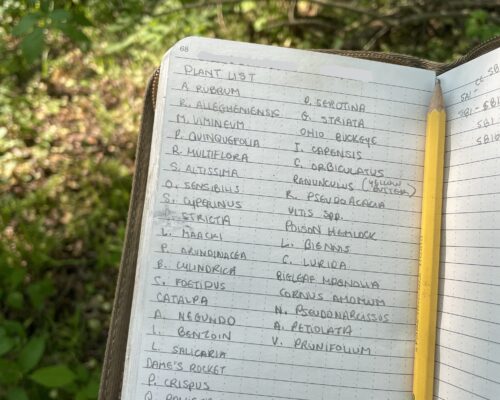 68
PLANT LIST
A. RUBRUM
R. ALLEGHENIENSIS
M. VIMINEUM
P. QUINQUEFOLIA
R. MULTIFLORA
S. ALTISSIMA
O. SENSIBILIS
S. CYPERINUS
STRICTA
L. MAACKI
P. ARUNDINACEA
B. CYLINDRICA
S. FOETIDUS
CATALPA
A. NEGUNDO
L. BENZOIN
L. SALICARIA
DAME'S ROCKET
P. CRISPUS
P. SEROTINA
G. STRIATA
OHIO BUCKEYE
I. CAPENSIS
C. ORBICULATUS
RANUNCULUS (YELLOW
R. PSEUDOACACIA
VITIS SPP.
POISON HEMLOCK
L. BIENNIS
C. LURIDA
BIGLEAF MAGNOLIA
CORNUS AMOMUM
N. PSEUDONARCISSOS
A. PETIOLATA
V. PRUNIFOLIUM